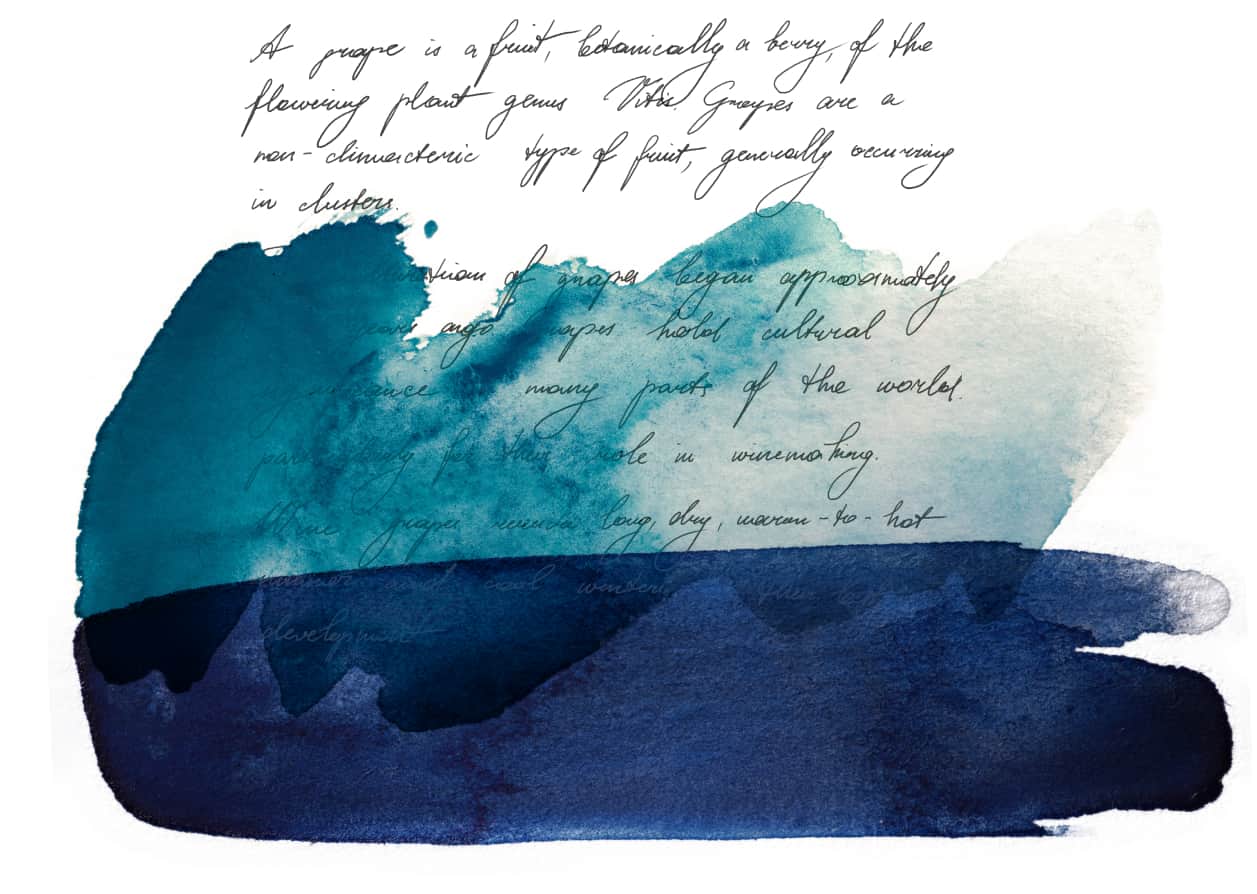 A grape is a fruit, botanically a berry, of the
flowering plant genus Vitis. Grapes are a
non-climacteric type of fruit, generally occurring
in clusters.
of grapes began approximately
years ago. hold cultural
many parts of the world.
particularly for their role in winemaking.
Wine grapes long, dry, warm-to-hot
summer and cool winters
development